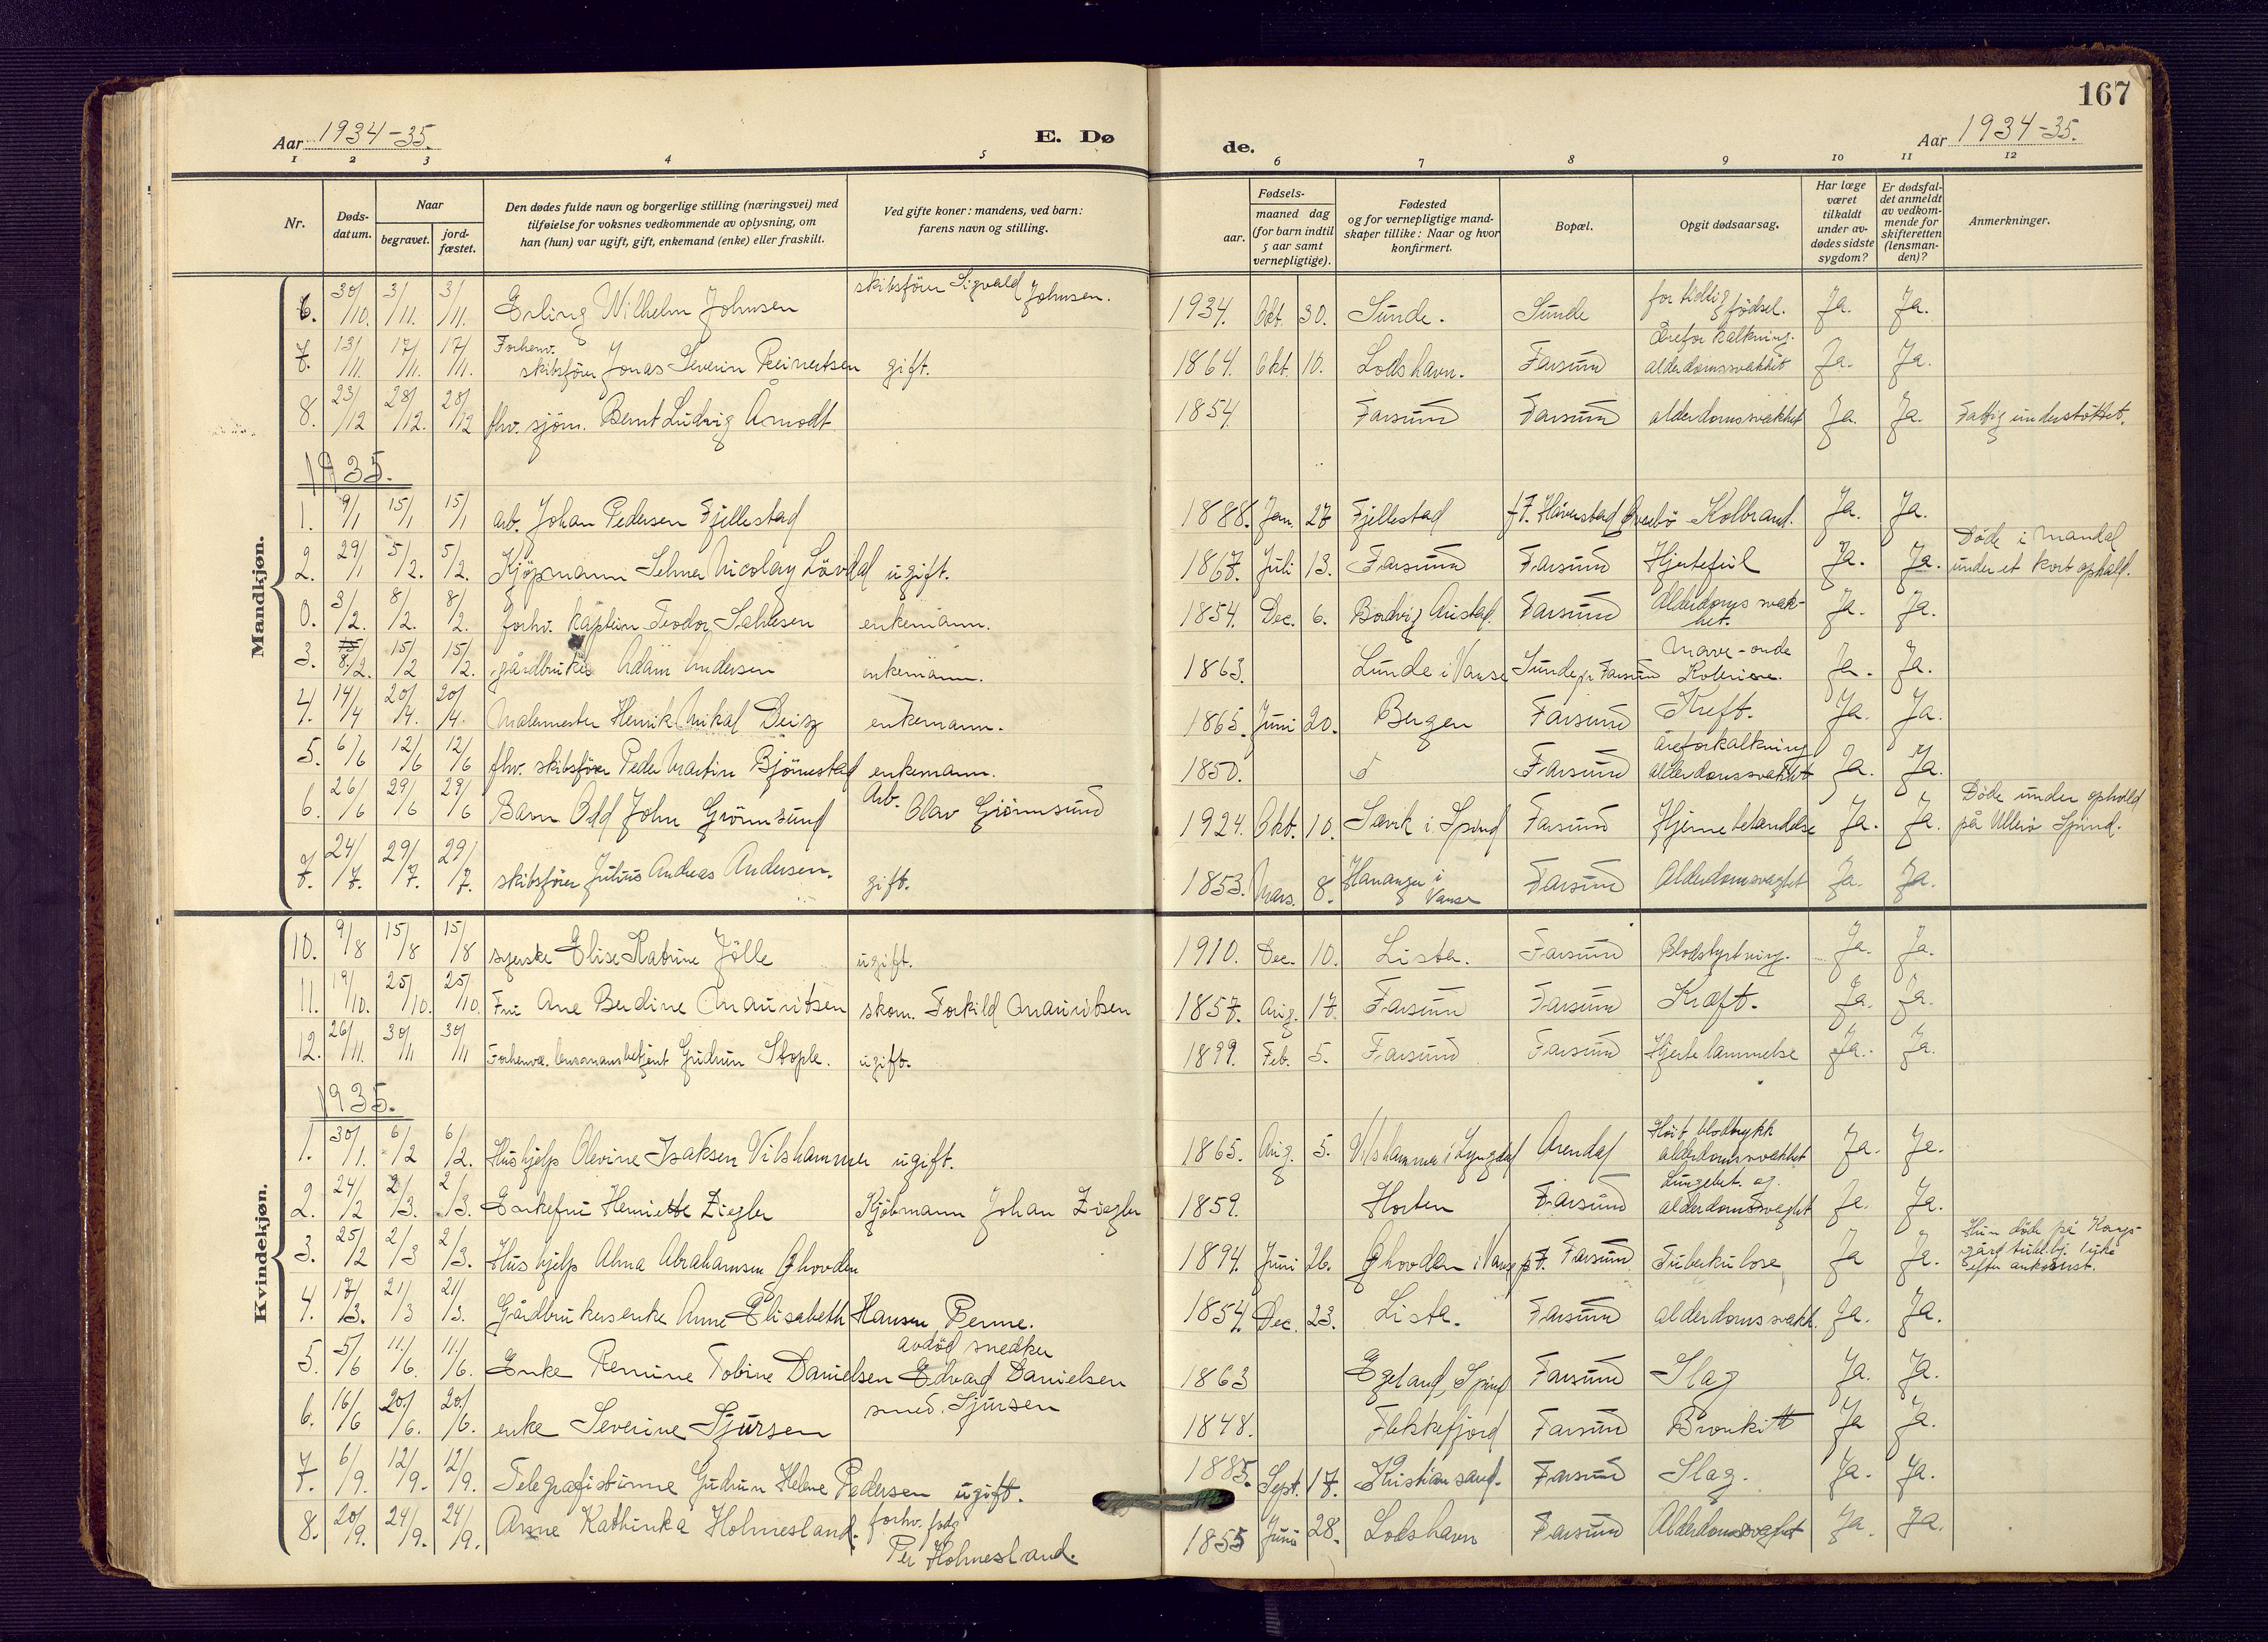 167
Aar 1934-35. E. Dø de. Aar 1934-35.
1 2 3 4 5 6 7 8 9 10 11 12
Nr. Dødsdatum. Naar begravet. jordfæstet. Den dødes fulde navn og borgerlige stilling (næringsvei) med tilføielse for voksnes vedkommende av oplysning, om han (hun) var ugift, gift, enkemand (enke) eller fraskilt. Ved gifte koner: mandens, ved barn: farens navn og stilling. Fødsels- aar. maaned dag (for barn indtil 5 aar samt vernepligtige). Fødested og for vernepligtige mandskaper tillike: Naar og hvor konfirmert. Bopæl. Opgit dødsaarsag. Har læge været tilkaldt under avdødes sidste sygdom? Er dødsfaldet anmeldt av vedkommende for skifteretten (lensmanden)? Anmerkninger.
Mandkjøn.
6. 30/10. 3/11. 3/11. Erling Wilhelm Johnsen skibsfører Sigvald Johnsen. 1934. Okt. 30. Sunde. Sunde for tidlig fødsel. Ja. Ja.
7. 13/11. 17/11. 17/11. Forhenv. skibsfører Jonas Severin Reinertsen gift. 1864. Okt. 10. Loshavn. Farsund Åreforkalkning. alderdomssvakhet Ja. Ja.
8. 23/12 28/12. 28/12 fhv. sjøm. Bernt Ludvig Årnodt 1854. Farsund Farsund alderdomssvakhet Ja. Ja. Fattig understøttet.
1935.
1. 9/1 15/1 15/1 arb. Johan Pedersen Fjellestad 1888. Jan. 27 Fjellestad Håverstad Øvrebø Kolbrand. Ja. Ja.
2. 29/1 5/2. 5/2. Kjøpmann Selmer Nicolay Løvdal ugift. 1867. Juli 13. Farsund Farsund Hjertefeil Ja. Ja. Døde i Mandal under et kort ophold.
0. 3/2. 8/2. 8/2. forhv. kaptein Teodor Salvesen enkemann. 1854. Dec. 6. Bodvig Austad. Farsund Alderdoms svakhet. Ja. Ja.
3. 8./2. 15/2 15/2. gårdbruker Adam Andersen enkemann. 1863. Lunde i Vanse Sunde pr Farsund Mave-onde Ja. Ja.
4. 14/4 20/4. 20/4. Malermester Henrik Mikal Deisz enkemann. 1865. Juni 20. Bergen Farsund Kreft. Ja. Ja.
5. 6/6 12/6 12/6 fhv. skibsfører Peder Martin Bjørnestad enkemann. 1850. Farsund åreforkalkning alderdomssvakhet Ja. Ja.
6. 26/6 29/6 29/6 Barn Odd John Grønnsund Arb. Olav Grønnsund 1924. Okt. 10. Sævik i Spind Farsund Hjernebetændelse Ja. Ja. Døde under ophold på Ullerø Spind.
7. 24/7. 29/7. 29/7. skibsfører Julius Andreas Andersen. gift. 1853. Mars. 8. Hananger i Vanse Farsund Alderdomsvaghet Ja. Ja.
Kvindekjøn.
10. 9/8 15/8 15/8 syerske Elise Katrine Jølle ugift. 1910. Dec. 10. Lista. Farsund Blodstyrtning. Ja. Ja.
11. 19/10. 25/10. 25/10. Fru Ane Berdine Mauritsen skom. Torkild Mauritsen 1857. Aug. 17. Farsund Farsund Kræft. Ja. Ja.
12. 26/11. 30/11 30/11 Forhenv. lensmansbetjent Gudrun Stople. ugift. 1899. Feb. 5. Farsund Farsund Hjertelammelse Ja. Ja.
1935.
1. 30/1. 6/2 6/2. Hushjelp Olevine Isaksen Vilshammer ugift. 1865. Aug. 5. Vilshammer i Lyngdal Arendal Høit blodtrykk alderdomssvakhet Ja. Ja.
2. 24/2 2/3. 2/3. Enkefru Henriette Ziegler Kjøbmann Johan Ziegler 1859. Horten Farsund Lungebet. og alderdomsvaghet Ja. Ja.
3. 25/2 2/3 2/3. Hushjelp Alma Abrahamsen Ghovden 1894. Juni 26. Ghovden i Vanse Farsund Tuberkulose Ja Ja. Hun døde på Kongsgård tub.hj. like efter ankomst.
4. 17/3. 21/3 21/3. Gårdbrukerenke Anne Elisabeth Hansen Penne. 1854. Dec. 23. Lista. Farsund alderdoms svakh. Ja. Ja.
5. 5/6 11/6. 11/6. Enke Remine Tobine Danielsen avdød snedker Edvard Danielsen 1863 Egeland, Spind Farsund Slag Ja. Ja.
6. 16/6 20/6. 20/6. enke Severine Sjursen smed. Sjursen 1848. Flekkefjord Farsund Bronkitt Ja Ja.
7. 6/9. 12/9. 12/9. Telegrafistinne Gudrun Helene Pedersen ugift. 1885. Sept. 17. Kristiansand. Farsund Slag. Ja. Ja.
8. 20/9. 24/9. 24/9. Anne Kathinka Holmesland. forhv. fogd Per Holmesland. 1855 Juni 28. Loshavn Farsund Alderdomsvaghet Ja. Ja.